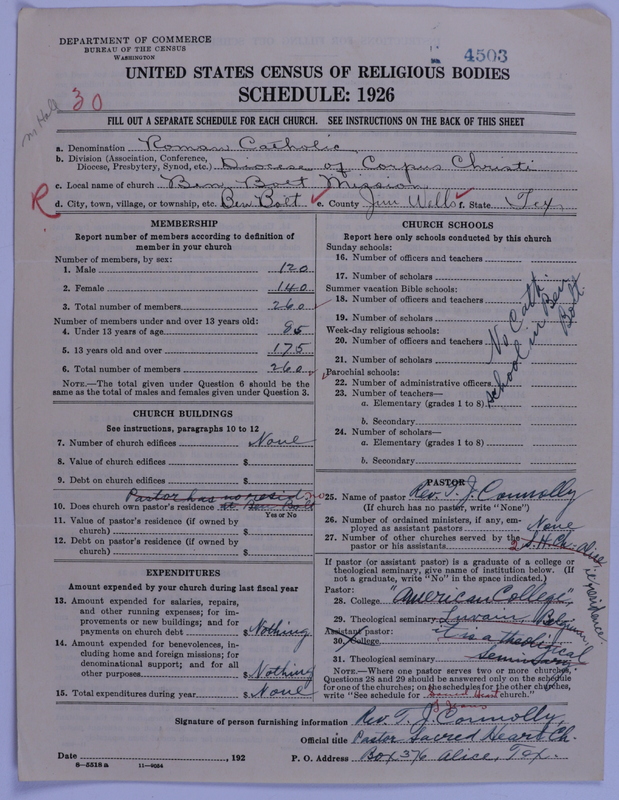 DEPARTMENT OF COMMERCE
BUREAU OF THE CENSUS
WASHINGTON
4503
UNITED STATES CENSUS OF RELIGIOUS BODIES
SCHEDULE: 1926
30
FILL OUT A SEPARATE SCHEDULE FOR EACH CHURCH. SEE INSTRUCTIONS ON THE BACK OF THIS SHEET
a. Denomination Roman Catholic
b. Division (Association, Conference, Diocese, Presbytery, Synod, etc.) Diocese of Corpus Christi
c. Local name of church Ben Bolt Mission
R
d. City, town, village, or township, etc. Ben Bolt e. County Jim Wells f. State Tex
MEMBERSHIP
Report number of members according to definition of
member in your church
Number of members, by sex:
1. Male 120
2. Female 140
3. Total number of members 260
Number of members under and over 13 years old:
4. Under 13 years of age 85
5. 13 years old and over 175
6. Total number of members 260
NOTE.—The total given under Question 6 should be the
same as the total of males and females given under Question 3.
CHURCH BUILDINGS
See instructions, paragraphs 10 to 12
7. Number of church edifices None
8. Value of church edifices $
9. Debt on church edifices $
Pastor has no resid. no
10. Does church own pastor's residence at Ben Bolt
Yes or No
11. Value of pastor's residence (if owned by
church) $
12. Debt on pastor's residence (if owned by
church) $
EXPENDITURES
Amount expended by your church during last fiscal year
13. Amount expended for salaries, repairs,
and other running expenses; for im-
provements or new buildings; and for
payments on church debt $ Nothing
14. Amount expended for benevolences, in-
cluding home and foreign missions; for
denominational support; and for all
other purposes $ Nothing
15. Total expenditures during year $ None
CHURCH SCHOOLS
Report here only schools conducted by this church
Sunday schools:
16. Number of officers and teachers
17. Number of scholars
Summer vacation Bible schools:
18. Number of officers and teachers
19. Number of scholars
Week-day religious schools:
20. Number of officers and teachers
21. Number of scholars
Parochial schools:
22. Number of administrative officers
23. Number of teachers—
a. Elementary (grades 1 to 8)
b. Secondary
24. Number of scholars—
a. Elementary (grades 1 to 8)
b. Secondary
No Cath.
school in Ben
Bolt
PASTOR
25. Name of pastor Rev. T. J. Connolly
(If church has no pastor, write "None")
26. Number of ordained ministers, if any, em-
ployed as assistant pastors None
27. Number of other churches served by the
pastor or his assistants 2 S. H. Ch. Alice
residence
If pastor (or assistant pastor) is a graduate of a college or
theological seminary, give name of institution below. (If
not a graduate, write "No" in the space indicated.)
Pastor:
28. College "American College",
29. Theological seminary Luvain, Belgium
Assistant pastor:
30. College it is a theological
31. Theological seminary seminary
NOTE.—Where one pastor serves two or more churches,
Questions 28 and 29 should be answered only on the schedule
for one of the churches; on the schedules for the other churches,
write "See schedule for Sacred Heart church."
Signature of person furnishing information Rev. T. J. Connolly,
Official title Pastor Sacred Heart Ch.
Date , 192
P. O. Address Box 376 Alice, Tex.
8—5518 a 11—9054